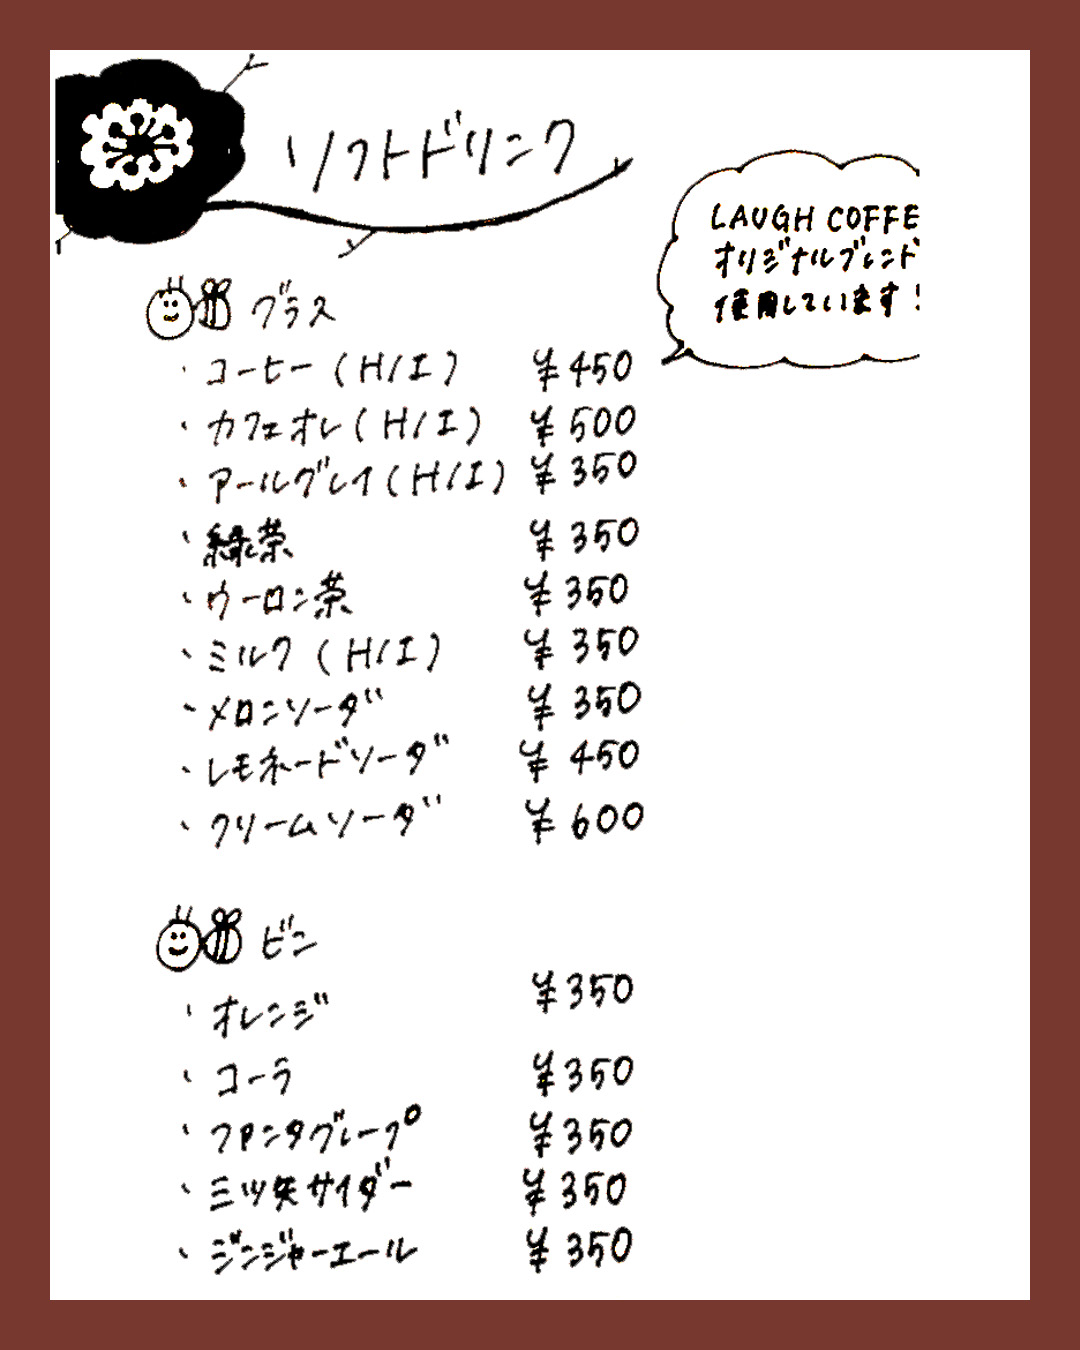 ソフトドリンク
LAUGH COFFE
オリジナルブレンド
使用しています!
グラス
・コーヒー(H/I) ¥450
・カフェオレ(H/I) ¥500
・アールグレイ(H/I) ¥350
・緑茶 ¥350
・ウーロン茶 ¥350
・ミルク(H/I) ¥350
・メロンソーダ ¥350
・レモネードソーダ ¥450
・クリームソーダ ¥600
ビン
・オレンジ ¥350
・コーラ ¥350
・ファンタグレープ ¥350
・三ツ矢サイダー ¥350
・ジンジャーエール ¥350